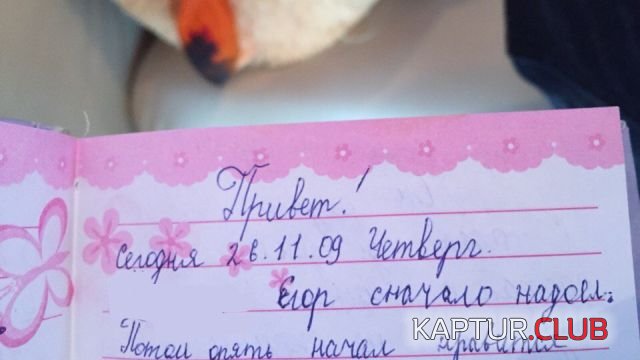 Привет!
Сегодня 26.11.09 Четверг.
Егор сначало надоел.
Потом опять начал нравится
KAPTUR.CLUB